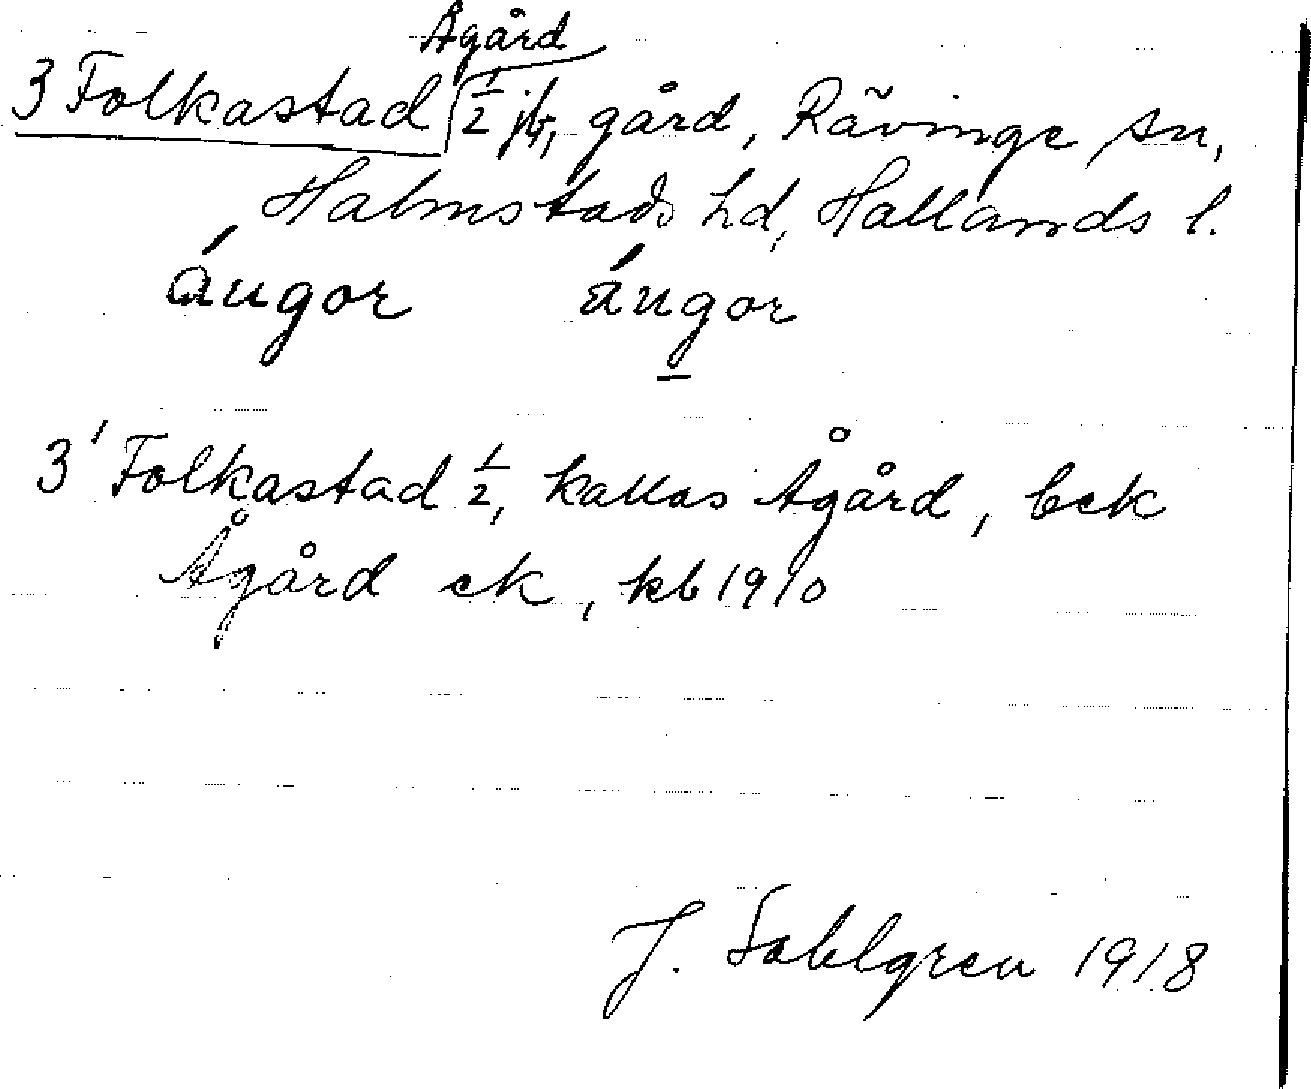 Ågård
3 Folkastad 1/2 jb, gård, Rävinge sn,
Halmstads hd, Hallands l.
áugor áugor
3' Folkastad 1/2, kallas Ågård, bek
Ågård ek, kb 1910
J. Sahlgren 1918